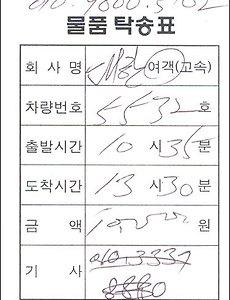 물품 탁송표
회 사 명 여객(고속)
차량번호 5532 호
출발시간 10 시 35 분
도착시간 13 시 30 분
금 액 10,000 원
기 사 010.3337